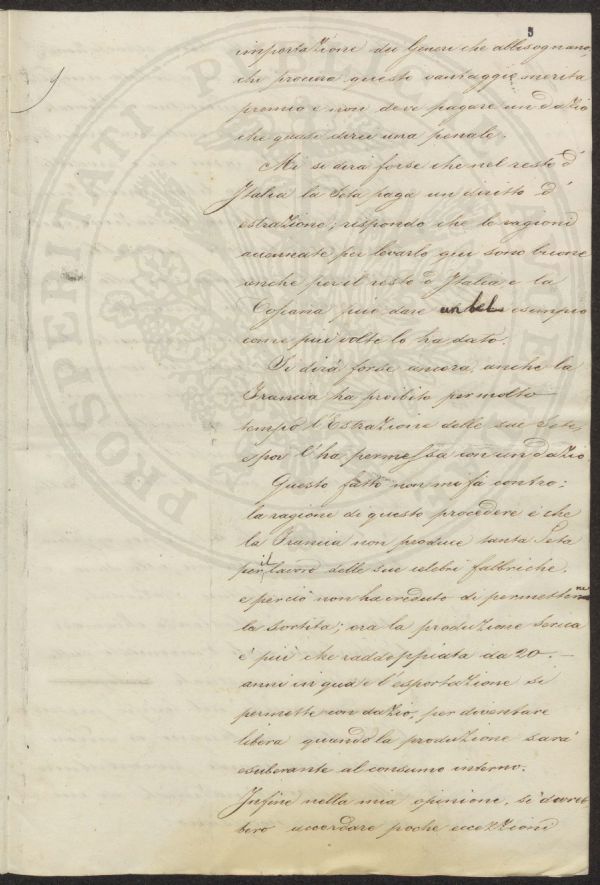 3
importazione dei Generi che abbisognano,
chi procura questo vantaggio merita
premio e non deve pagare un dazio
che quasi direi una penale.
Mi si dirà forse che nel resto d'
Italia la Seta paga un diretto d'
estrazione; rispondo che le ragioni
accennate per levarlo qui sono buone
anche per il resto d'Italia e la
Toscana può dare un bel esempio
come più volte lo ha dato.
Si dirà forse ancora, anche la
Francia ha proibito per molto
tempo l'Estrazione delle sue Sete,
e poi l'ha permessa con un dazio
Questo fatto non mi fà contro:
la ragione di questo procedere è che
la Francia non produce tanta Seta
per il lavoro delle sue celebri fabbriche,
e perciò non ha creduto di permetterne
la sortita; ora la produzione serica
è più che raddoppiata da 20.—
anni in qua e l'esportazione si
permette con dazio, per diventare
libera quando la produzione sarà
esuberante al consumo interno.
Infine nella mia opinione, si dovreb
bero accordare poche eccezzioni
PROSPERITATI PUBLICAE